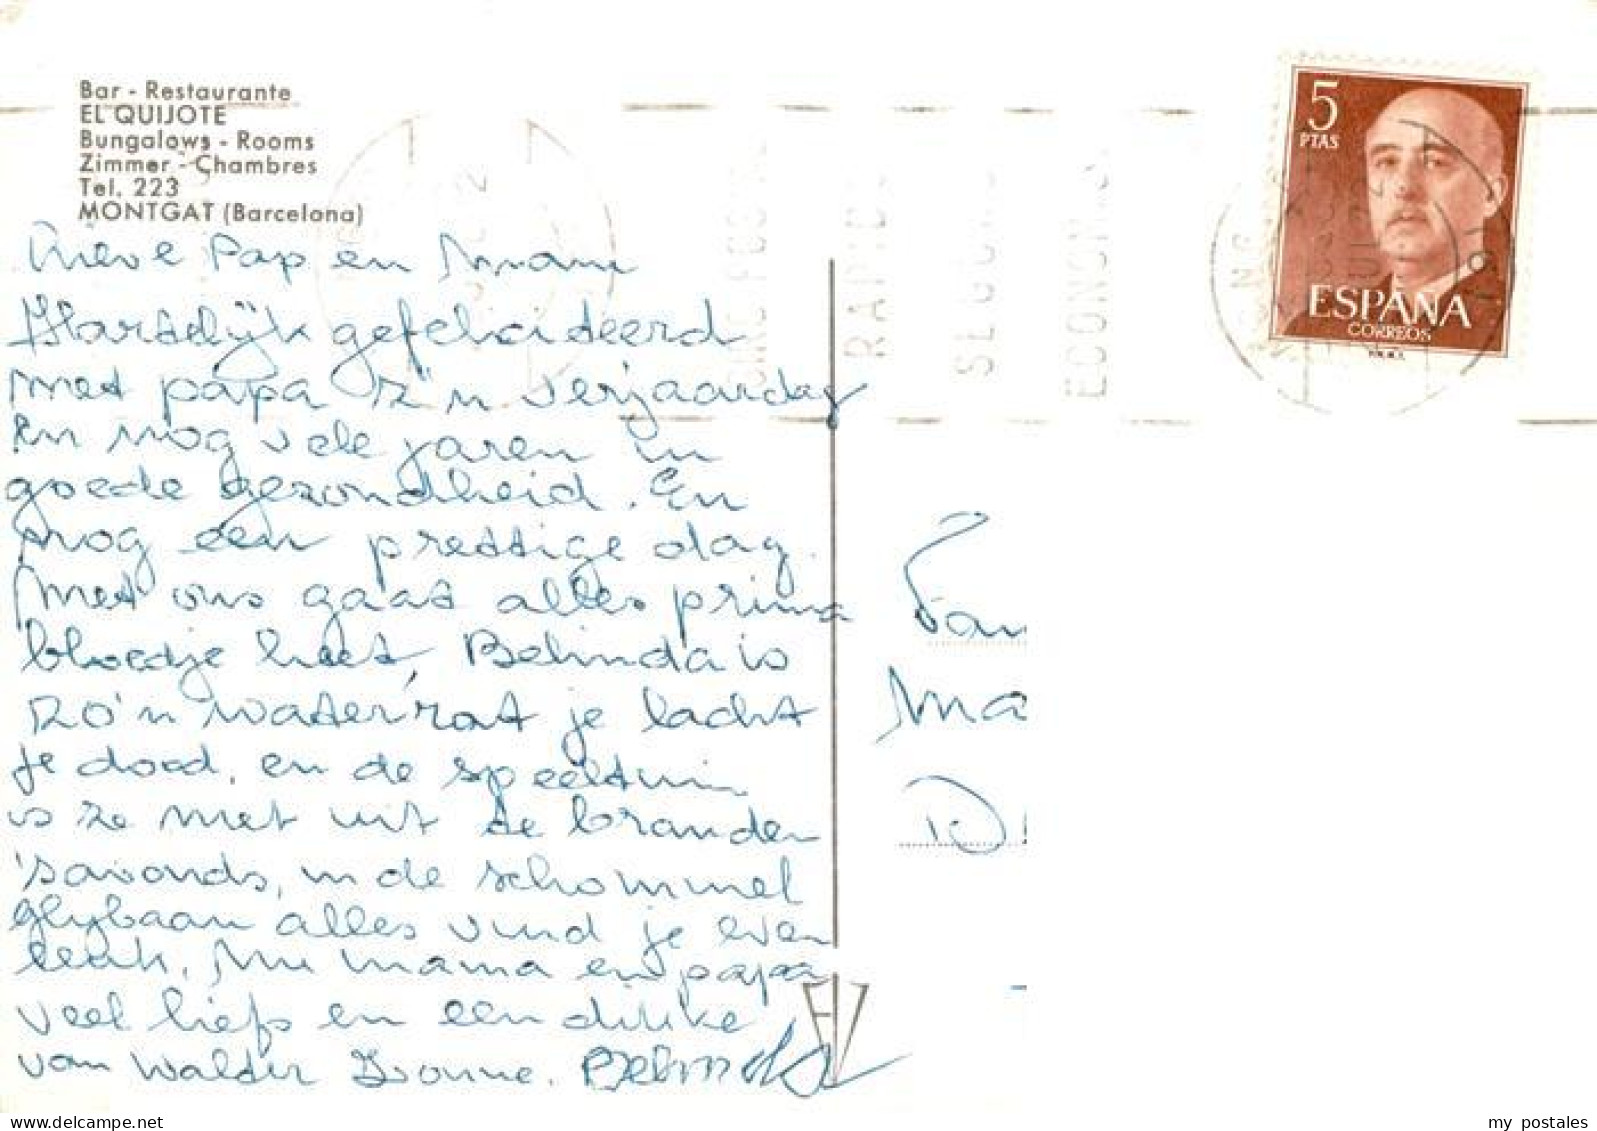 Bar - Restaurante
EL QUIJOTE
Bungalows - Rooms
Zimmer - Chambres
Tel. 223
MONTGAT (Barcelona)
5
PTAS
ESPAÑA
CORREOS
F.N.M.T.
Lieve Pap en Mam
Hartelijk gefeliciteerd
met papa z'n verjaardag
en nog vele jaren in
goede gezondheid. En
nog een prettige dag.
Met ons gaat alles prima
bloedje heet, Belinda is
zo'n waterrat je lacht
je dood, en de speeltuin
is ze met uit de branden
'savonds, in de schommel
glijbaan alles vind je even
leuk. Nu mama en papa
veel liefs en een dikke
van Walter Ivonne. Belinda
Fam
Ma
D
RAMOS
ECONOMICOS
www.delcampe.net
my postales